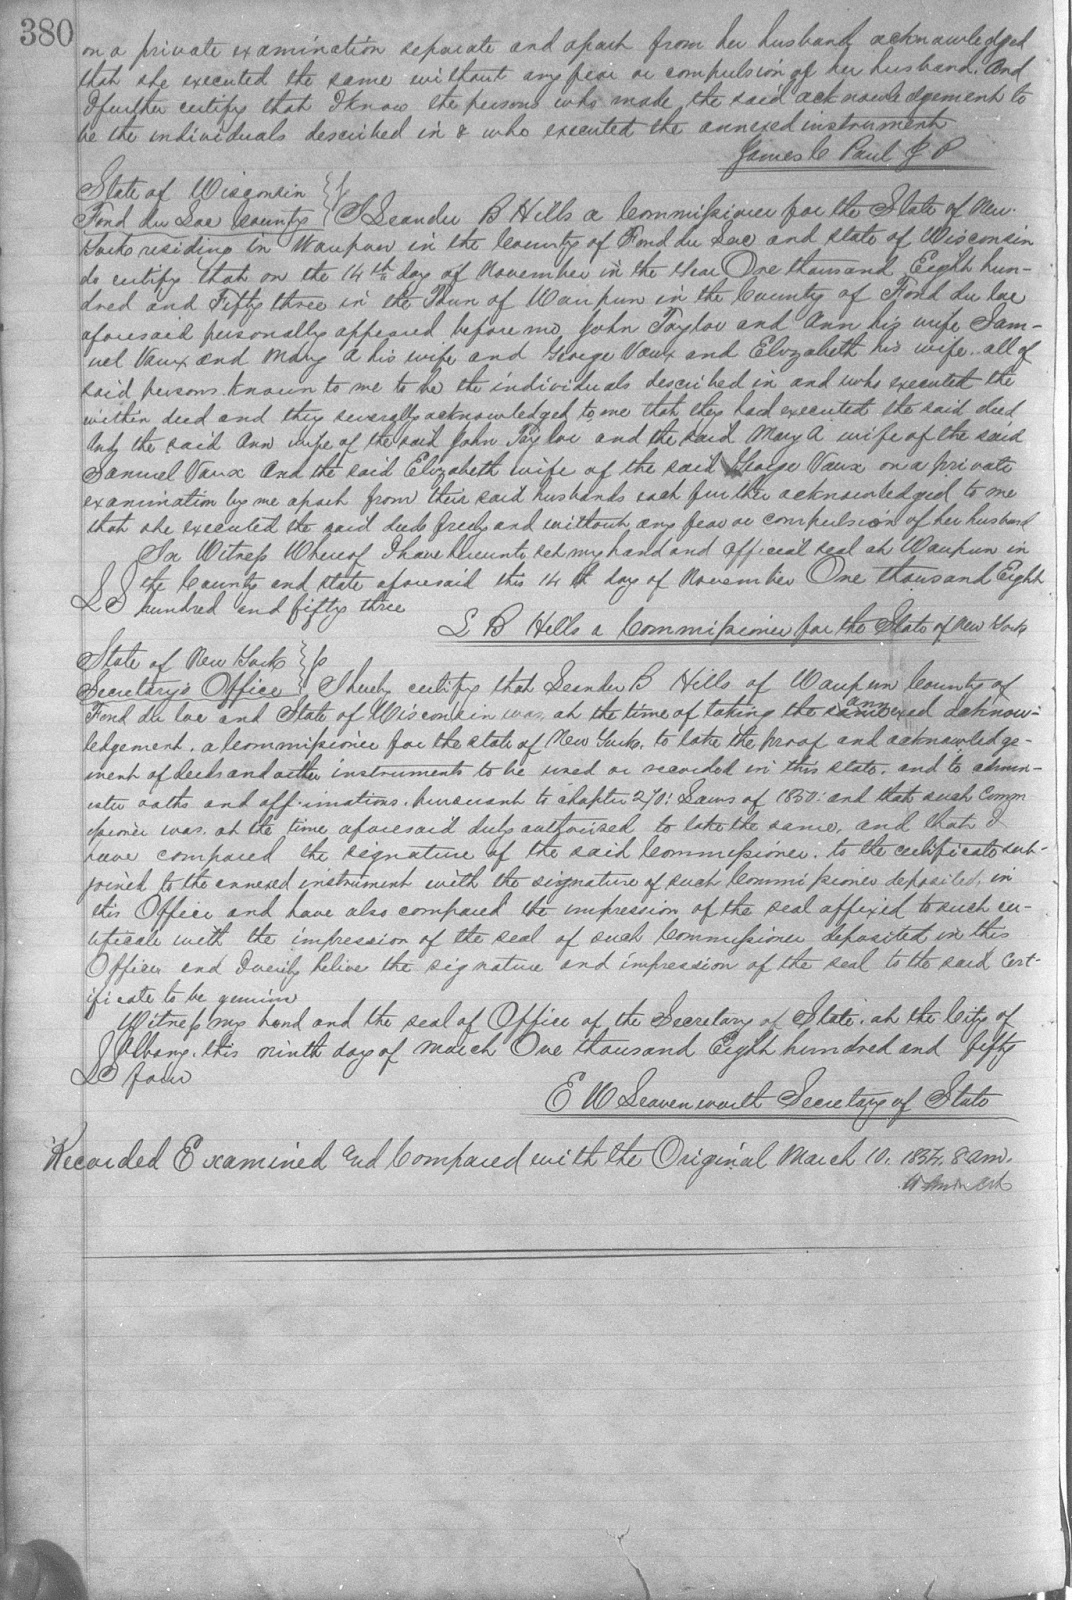 380
on a private examination separate and apart from her husband acknowledged
that she executed the same without any fear or compulsion of her husband. And
I further certify that I know the persons who made the said acknowledgement to
be the individuals described in & who executed the annexed instrument
James C Paul J P
State of Wisconsin
Fond du Lac County } ss I Leander B Hills a Commissioner for the State of New
York residing in Waupun in the County of Fond du Lac and State of Wisconsin
do certify that on the 14th day of November in the Year One thousand Eight hun-
dred and Fifty three in the Town of Waupun in the County of Fond du Lac
aforesaid personally appeared before me John Taylor and Ann his wife Sam-
uel Vaux and Mary A his wife and George Vaux and Elizabeth his wife. all of
said persons known to me to be the individuals described in and who executed the
within deed and they severally acknowledged to me that they had executed the said deed
And the said Ann wife of the said John Taylor and the said Mary A wife of the said
Samuel Vaux and the said Elizabeth wife of the said George Vaux on a private
examination by me apart from their said husbands each further acknowledged to me
that she executed the said deed freely and without any fear or compulsion of her husband
In Witness Whereof I have hereunto set my hand and official seal at Waupun in
L S the County and state aforesaid this 14th day of November One thousand Eight
hundred and fifty three
L B Hills a Commissioner for the State of New York
State of New York } ss
Secretary's Office } I hereby certify that Leander B Hills of Waupun County of
Fond du Lac and State of Wisconsin was, at the time of taking the annexed acknow-
ledgement. a Commissioner for the state of New York. to take the proof and acknowledge-
ment of deeds and other instruments to be used or recorded in this state. and to admin-
ister oaths and affirmations. pursuant to chapter 270: Laws of 1850: and that such Comm
issioner was. at the time aforesaid duly authorised to take the same, and that I
have compared the signature of the said Commissioner. to the certificate sub-
joined to the annexed instrument with the signature of such Commissioner deposited. in
this Office and have also compared the impression of the seal affixed to such cer-
tificate with the impression of the seal of such Commissioner deposited in this
Office and I verily belive the signature and impression of the seal to the said cert-
ificate to be genuine
Witness my hand and the seal of Office of the Secretary of State. at the City of
L S Albany. this ninth day of March One thousand Eight hundred and fifty
four
E W Leavenworth Secretary of State
Recorded Examined and Compared with the Original March 10. 1854. 8 am.